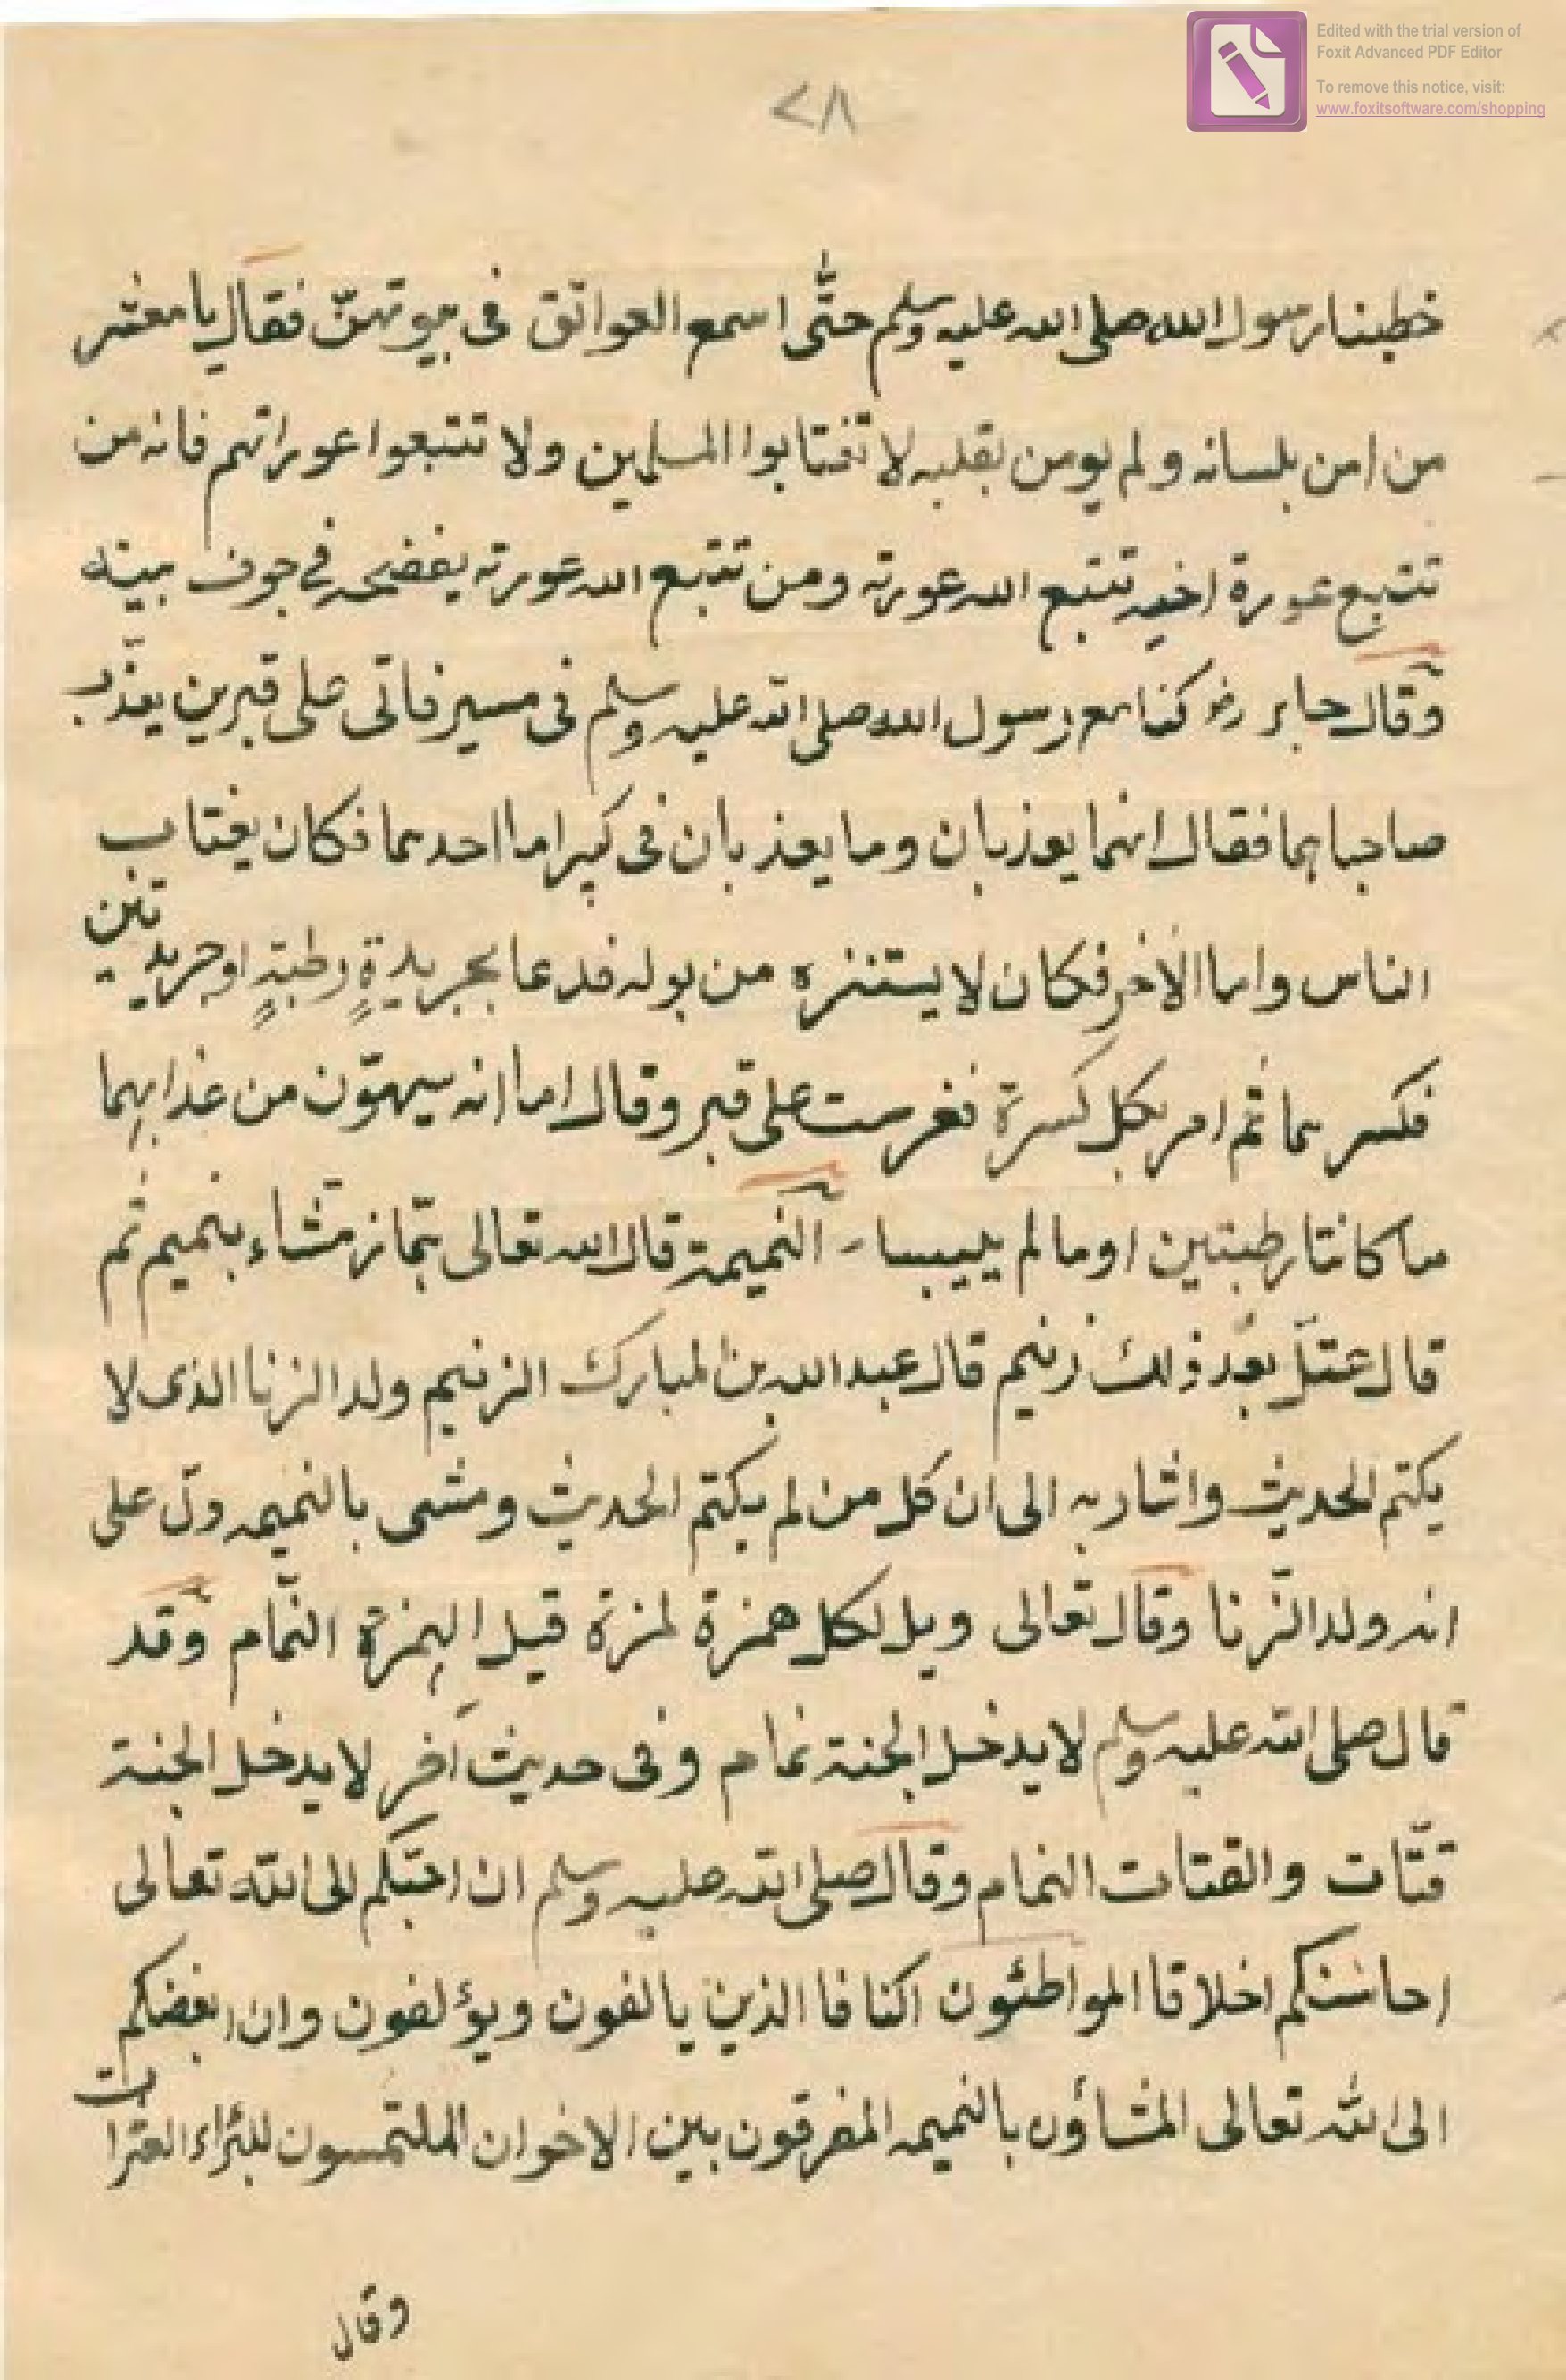 Edited with the trial version of
Foxit Advanced PDF Editor
To remove this notice, visit:
www.foxitsoftware.com/shopping
٧٨
خطبنا رسول الله صلى الله عليه وسلم حتّى اسمع العواتق فى بيوتهنّ فقال يا معشر
من امن بلسانه ولم يومن بقلبه لا تغتابوا المسلمين ولا تتبعوا عوراتهم فانه من
تتبع عورة اخيه تتبع الله عورته ومن تتبع الله عورته يفضحه فى جوف بيته
وقال جابر رضه كنا مع رسول الله صلى الله عليه وسلم فى مسير فاتى على قبرين يعذّب
صاحباهما فقال انهما يعذبان وما يعذبان فى كبير اما احدهما فكان يغتاب
الناس واما الأخر فكان لا يستنزه من بوله فدعا بجريدةٍ رطبةٍ او جريدتين
فكسرهما ثم امر بكل كسرة فغرست على قبر وقال اما انه سيهوّن من عذابهما
ما كانتا رطبتين او ما لم ييبسا - النميمة قال الله تعالى همّاز مشّاء بنميم ثم
قال عتلّ بعد ذلك زنيم قال عبد الله بن المبارك الزنيم ولد الزنا الذى لا
يكتم الحديث واشار به الى ان كل من لم يكتم الحديث ومشى بالنميمه دلّ على
انه ولد الزّنا وقال تعالى ويل لكل همزة لمزة قيل الهمزة النّمام وقد
قال صلى الله عليه وسلم لا يدخل الجنة نمام وفى حديث آخر لا يدخل الجنة
قتّات والقتات النمام وقال صلى الله عليه وسلم ان احبّكم الى الله تعالى
احاسنكم اخلاقا الموطئون اكنافا الذين يالفون ويؤلفون وان ابغضكم
الى الله تعالى المشاؤن بالنميمه المفرقون بين الاخوان الملتمسون للبرّاء العثرات
وقال